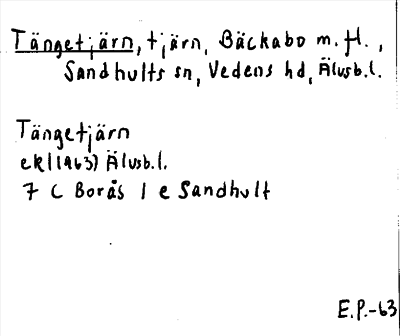 Tängetjärn, tjärn, Bäckabo m. fl.,
Sandhults sn, Vedens hd, Älvsb. l.
Tängetjärn
ek (1963) Älvsb. l.
7 C Borås 1 e Sandhult
E.P.-63